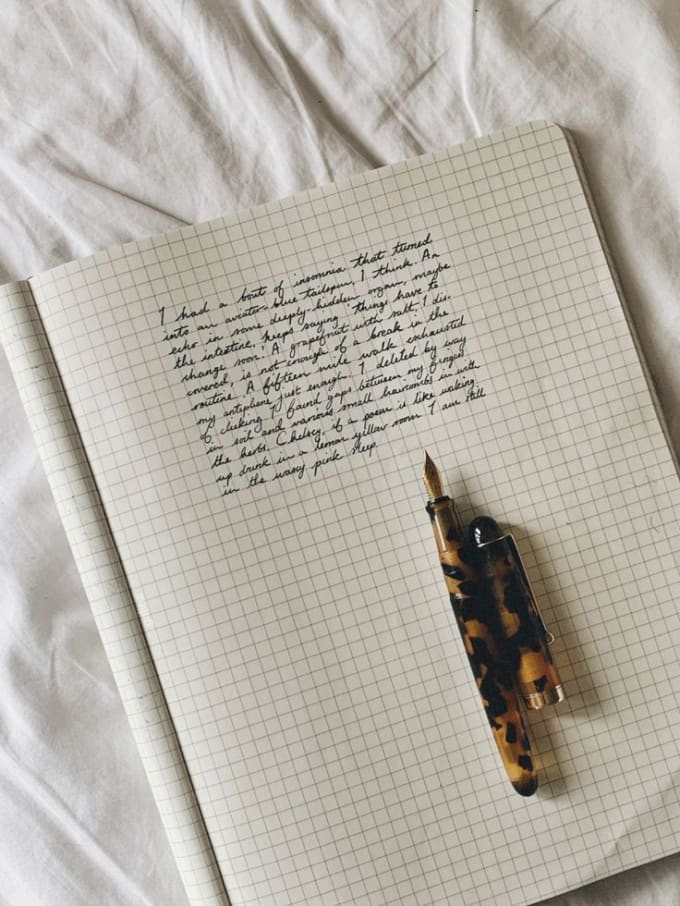 I had a bout of insomnia that turned
into an aviator-blue tailspin, I think. An
echo in some deeply-hidden organ, maybe
the intestine, keeps saying things have to
change soon. A grapefruit with salt, I dis-
covered, is not enough of a break in the
routine. A fifteen mile walk exhausted
my antiphene just enough. I deleted by way
of clicking. I found gaps between my fingers
in soil and various small haircombs in with
the herbs. Chelsey, if a poem is like waking
up drunk in a lemon yellow room I am still
in the waxy pink sleep